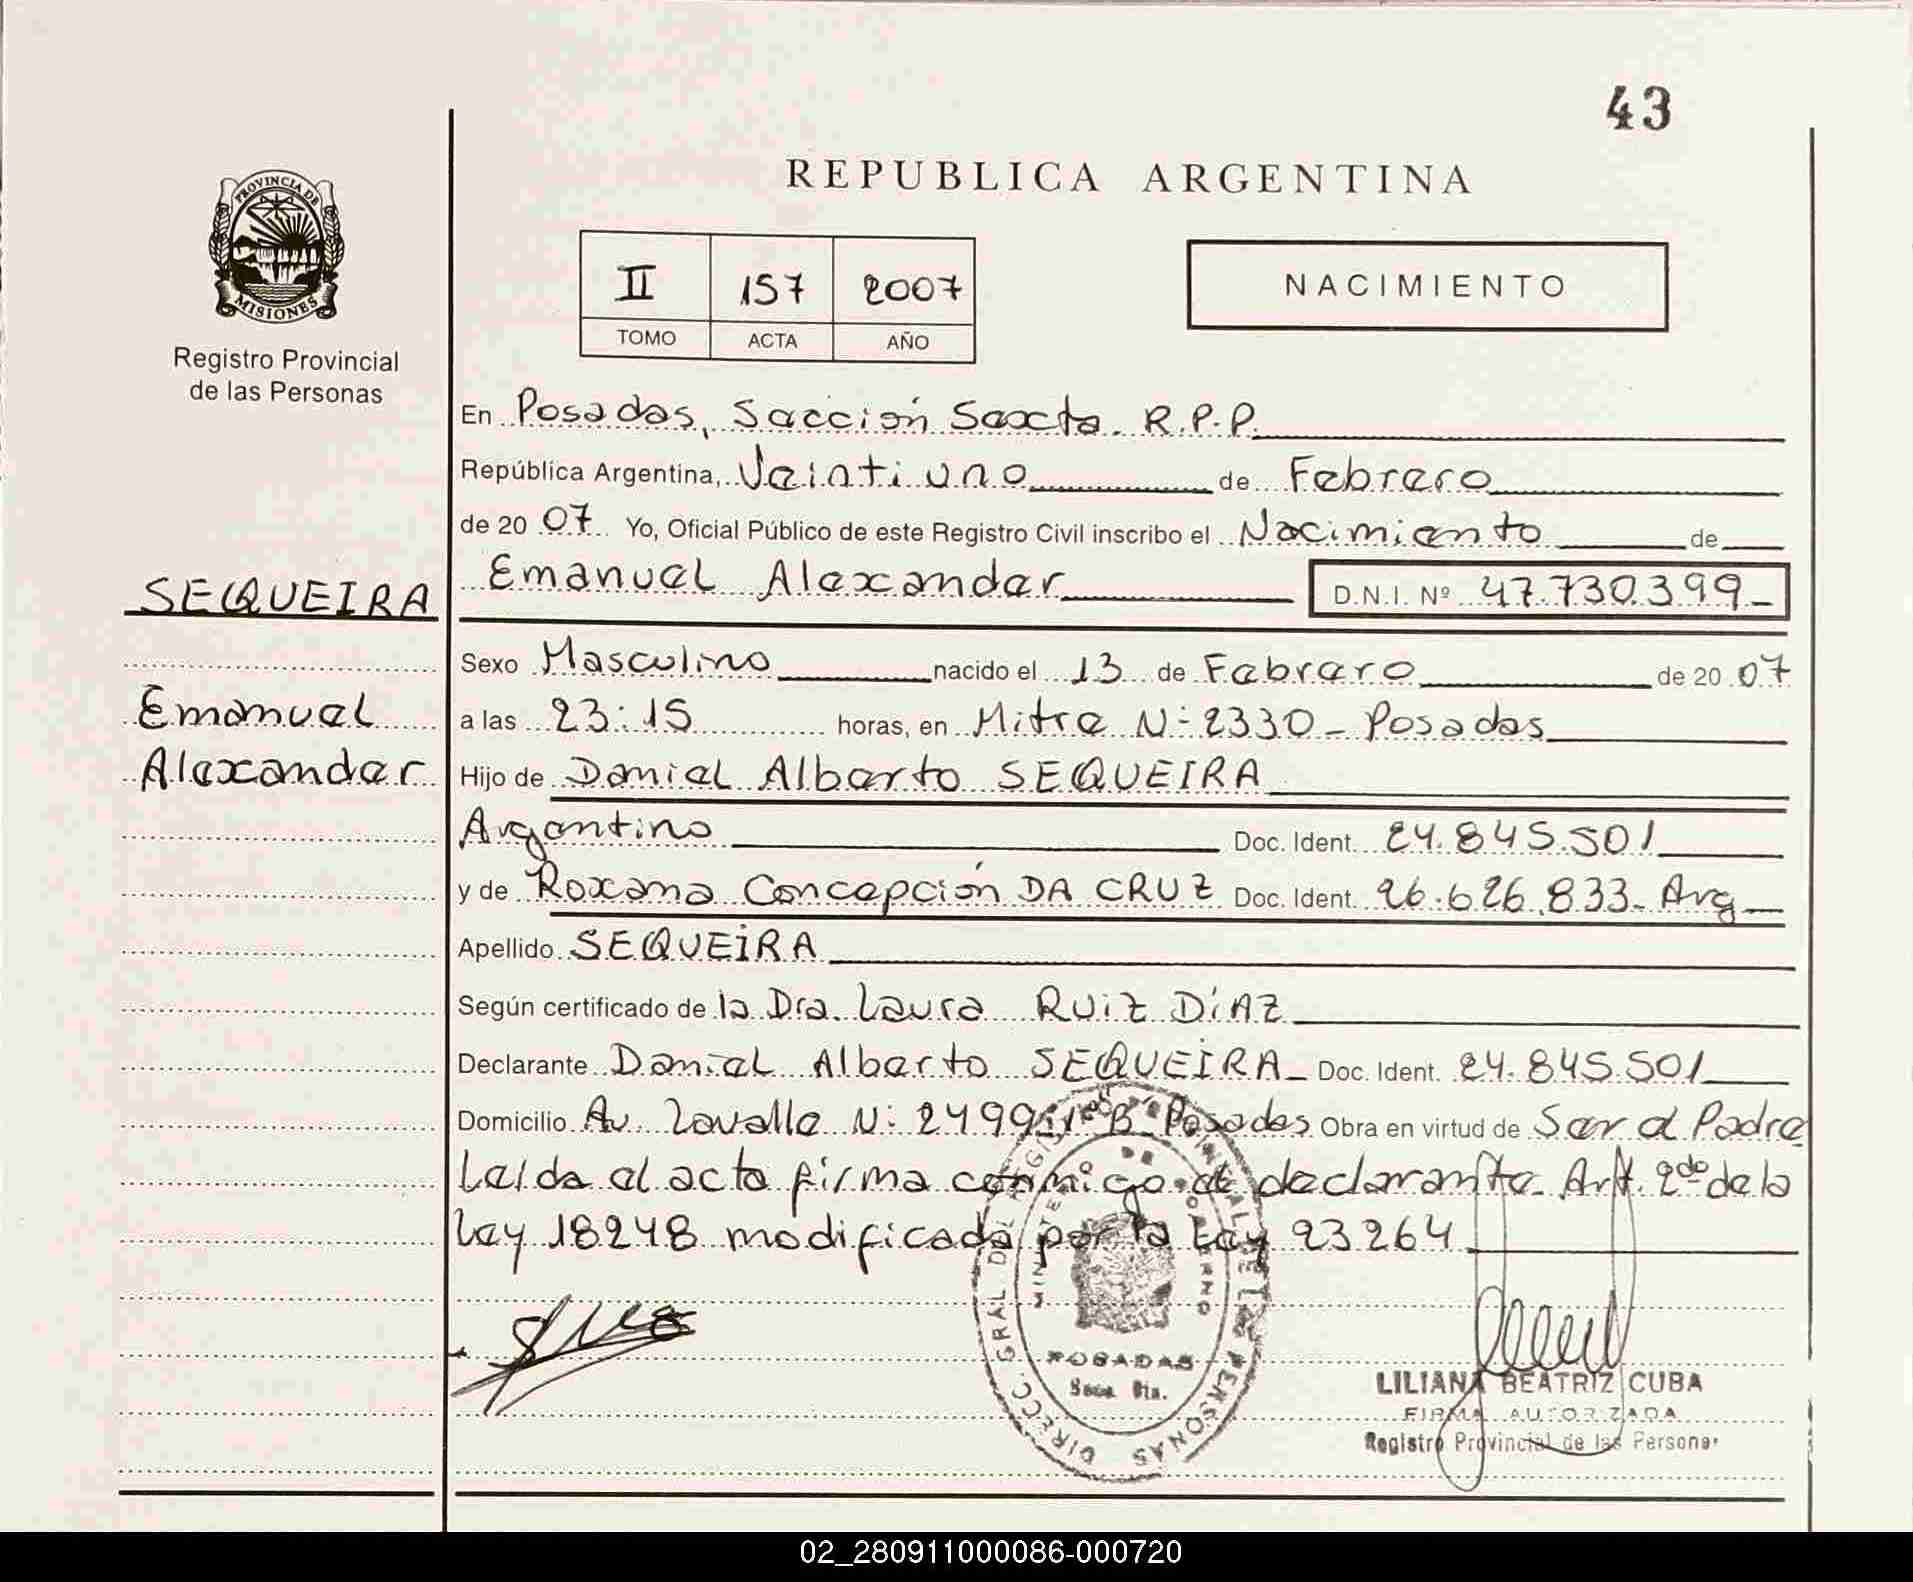 43
REPUBLICA ARGENTINA
PROVINCIA DE
MISIONES
Registro Provincial
de las Personas
II 157 2007
TOMO ACTA AÑO
NACIMIENTO
En Posadas, Sección Sexta R.P.P.
República Argentina, Veintiuno de Febrero
de 20 07 Yo, Oficial Público de este Registro Civil inscribo el Nacimiento de
Emanuel Alexander D.N.I. Nº 47.730.399
SEQUEIRA
Emanuel
Alexander
Sexo Masculino nacido el 13 de Febrero de 20 07
a las 23:15 horas, en Mitre Nº 2330 - Posadas
Hijo de Daniel Alberto SEQUEIRA
Argentino Doc. Ident. 24.845.501
y de Roxana Concepción DA CRUZ Doc. Ident. 26.626.833- Arg
Apellido SEQUEIRA
Según certificado de la Dra. Laura RUIZ DÍAZ
Declarante Daniel Alberto SEQUEIRA Doc. Ident. 24.845.501
Domicilio Av. Lavalle N: 2499 "B" Posadas Obra en virtud de Ser el Padre
Leída el acta firma conmigo el declarante. Art. 2do de la
Ley 18248 modificada por la Ley 23264
DIRECC. GRAL. DEL REGISTRO PROVINCIAL DE LAS PERSONAS
MINISTERIO DE GOBIERNO
POSADAS
Secc. 6ta.
LILIANA BEATRIZ CUBA
FIRMA AUTORIZADA
Registro Provincial de las Personas
02_280911000086-000720